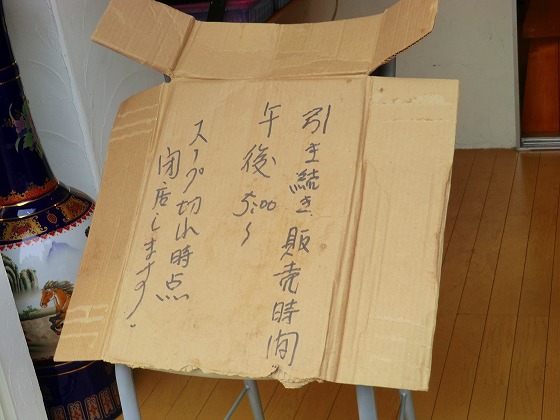 引き続き販売時間
午後5:00~
スープ切れ時点
閉店します。